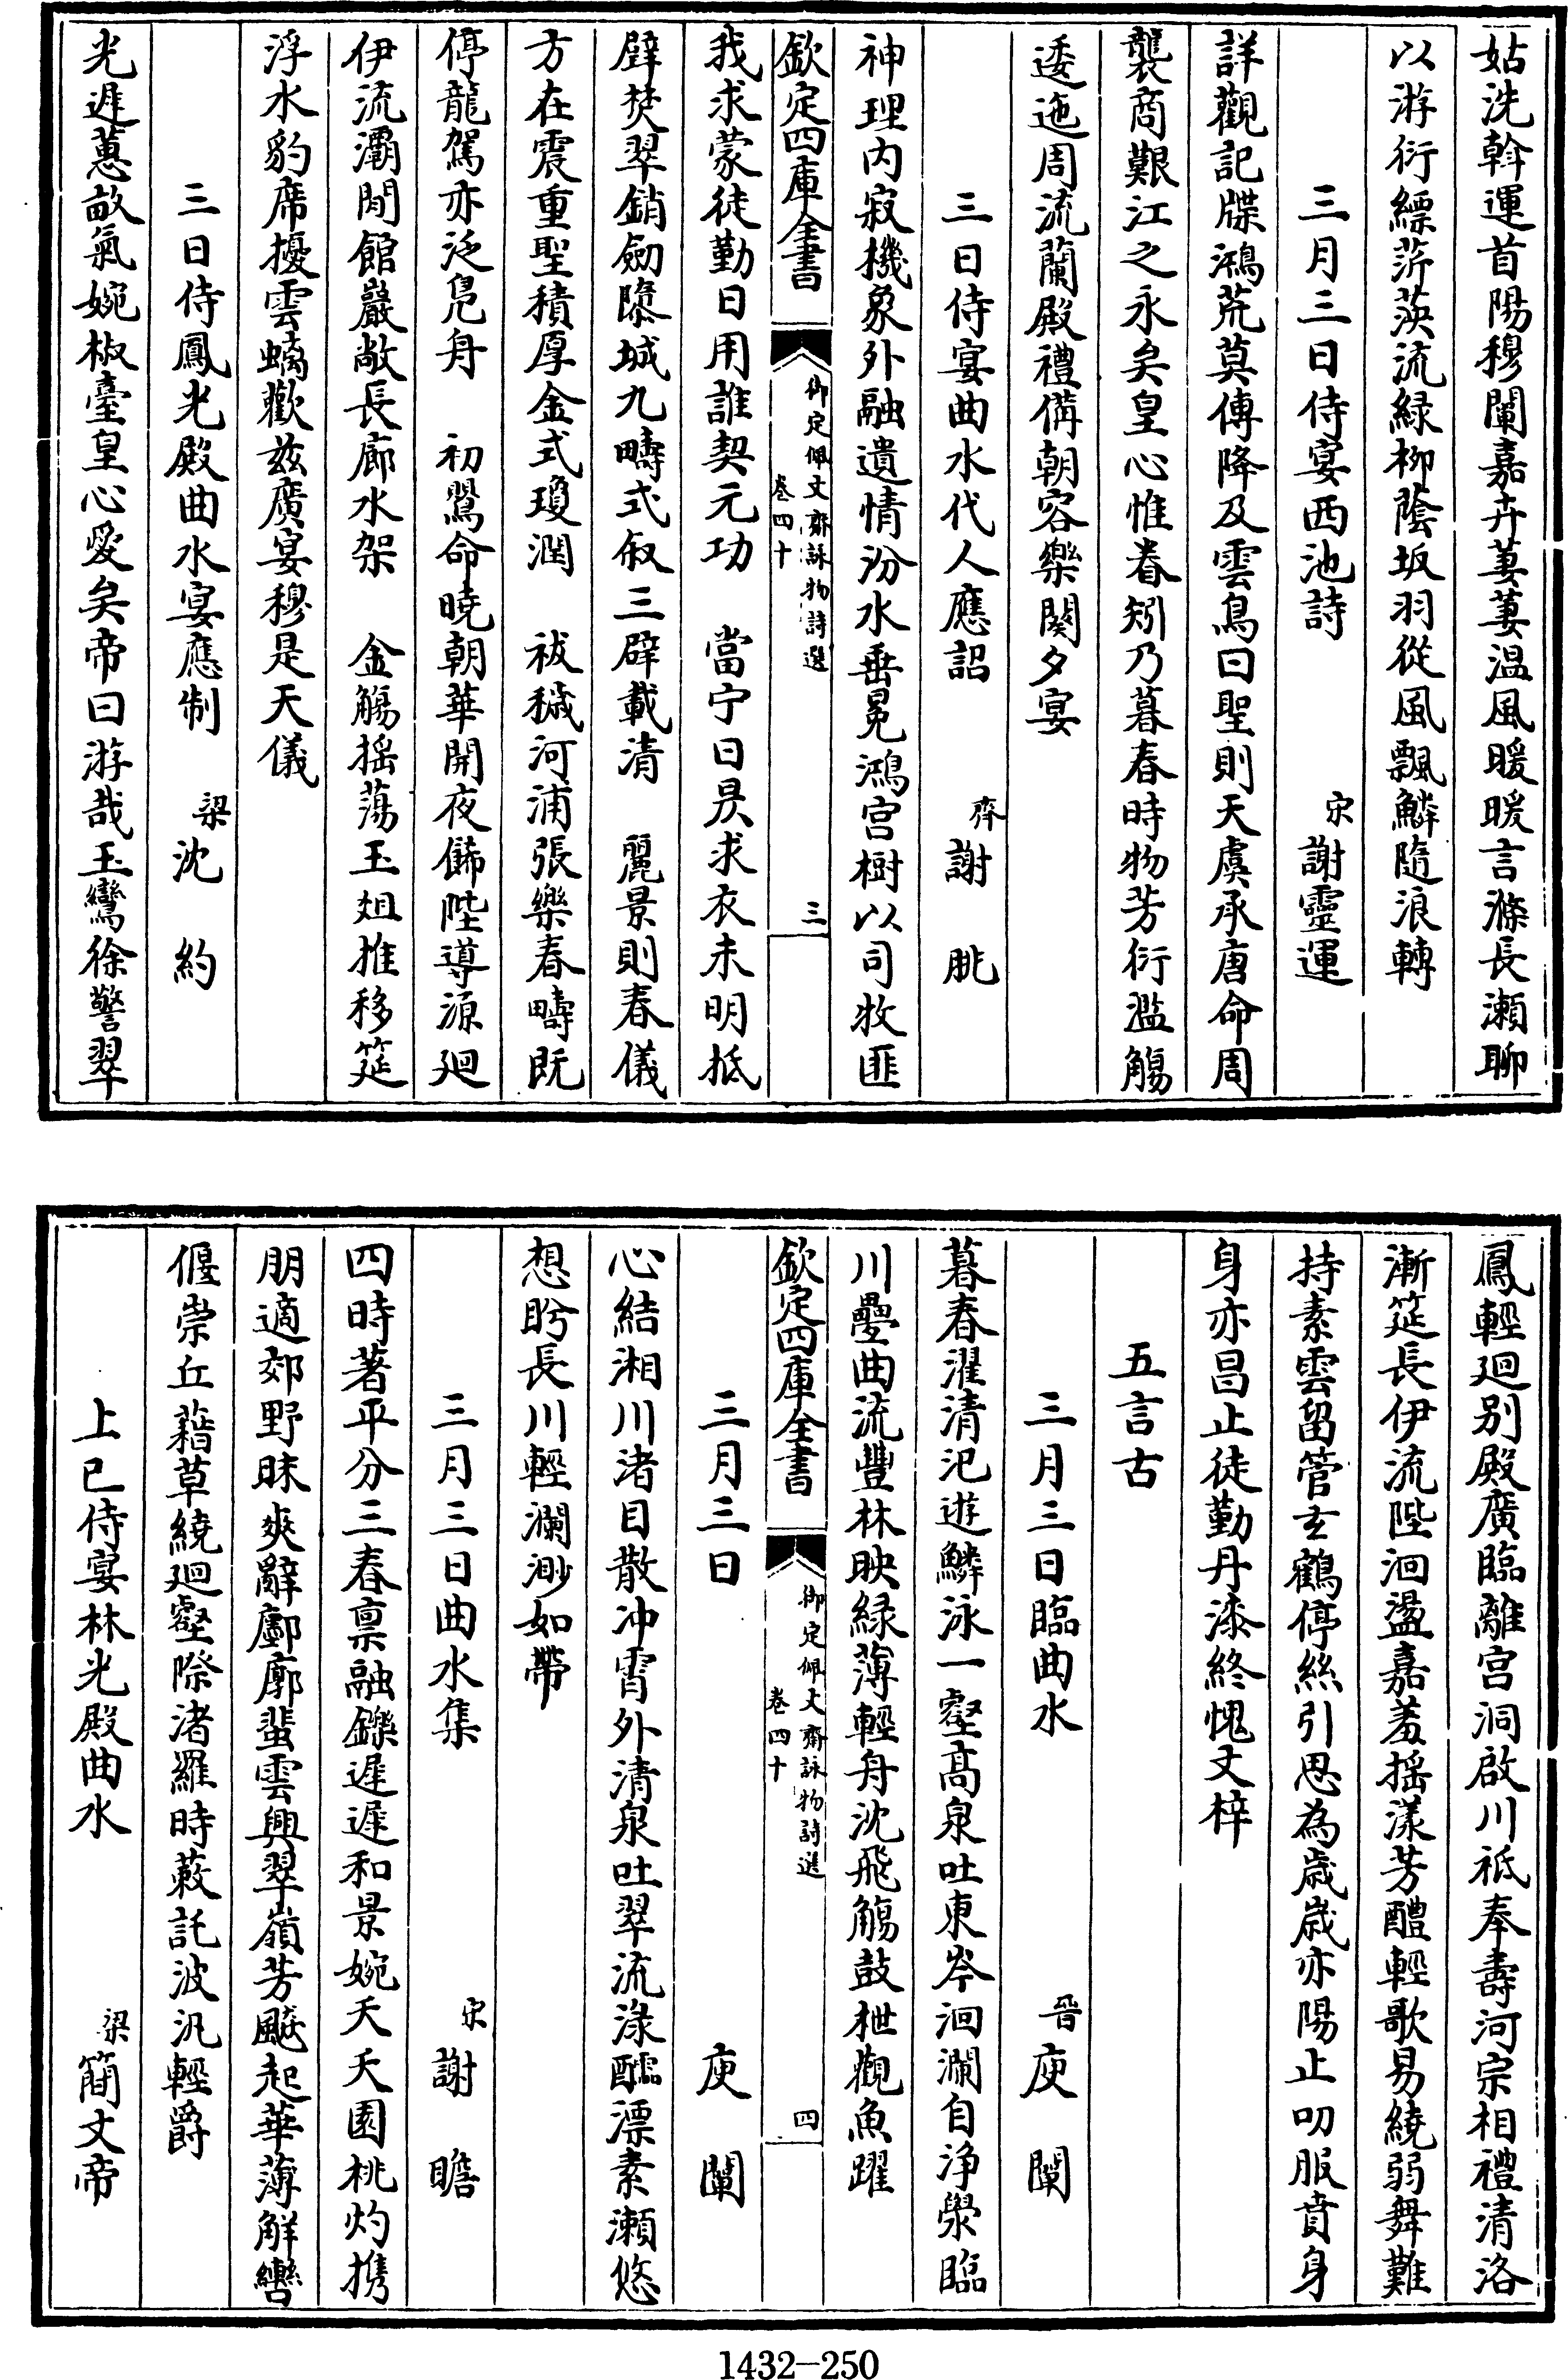 姑洗斡運首陽穆闡嘉卉萋萋温風暖暖言滌長瀬聊
以游衍縹蓱漪流緑栁蔭坂羽從風飄鱗隨浪轉
三月三日侍宴西池詩　宋謝靈運
詳觀記牒鴻荒莫傳降及雲鳥曰聖則天虞承唐命周
襲商艱江之永矣皇心惟眷矧乃暮春時物芳衍濫觴
逶迤周流蘭殿禮備朝容樂闋夕宴
三日侍宴曲水代人應詔　齊謝朓
神理内寂機象外融遺情汾水垂冕鴻宫樹以司牧匪
欽定四庫全書　御定佩文齋詠物詩選　卷四十　三
我求蒙徒勤日用誰契元功　當宁日昃求衣未明抵
璧焚翠銷劒隳城九疇式叙三辟載清　麗景則春儀
方在震重聖積厚金式瓊潤　祓穢河浦張樂春疇既
停龍駕亦泛鳬舟　初鸎命曉朝華開夜餙陛導源廻
伊流灞閒館巖敞長廊水架　金觴揺蕩玉俎推移筵
浮水豹席擾雲螭歡兹廣宴穆是天儀
三日侍鳳光殿曲水宴應制　梁沈約
光遲蕙畝氣婉椒臺皇心愛矣帝曰游哉玉鸞徐警翠
鳳輕廻别殿廣臨離宫洞啟川祗奉壽河宗相禮清洛
漸筵長伊流陛洄盪嘉羞揺漾芳醴輕歌易繞弱舞難
持素雲留管玄鶴停絲引思為歳歳亦陽止叨服賁身
身亦昌止徒勤丹漆終愧文梓
五言古
三月三日臨曲水　晉庾闡
暮春濯清汜遊鱗泳一壑髙泉吐東岑洄瀾自浄滎臨
川疊曲流豐林映緑薄輕舟沈飛觴鼓枻觀魚躍
欽定四庫全書　御定佩文齋詠物詩選　卷四十　四
三月三日　庾闡
心結湘川渚目散冲霄外清泉吐翠流渌醽漂素瀬悠
想盻長川輕瀾渺如帶
三月三日曲水集　宋謝瞻
四時著平分三春禀融鑠遲遲和景婉夭夭園桃灼携
朋適郊野昧爽辭鄽廓蜚雲興翠嶺芳飇起華薄解轡
偃崇丘藉草繞廻壑際渚羅時蔌託波汎輕爵
上巳侍宴林光殿曲水　梁簡文帝
1432-250